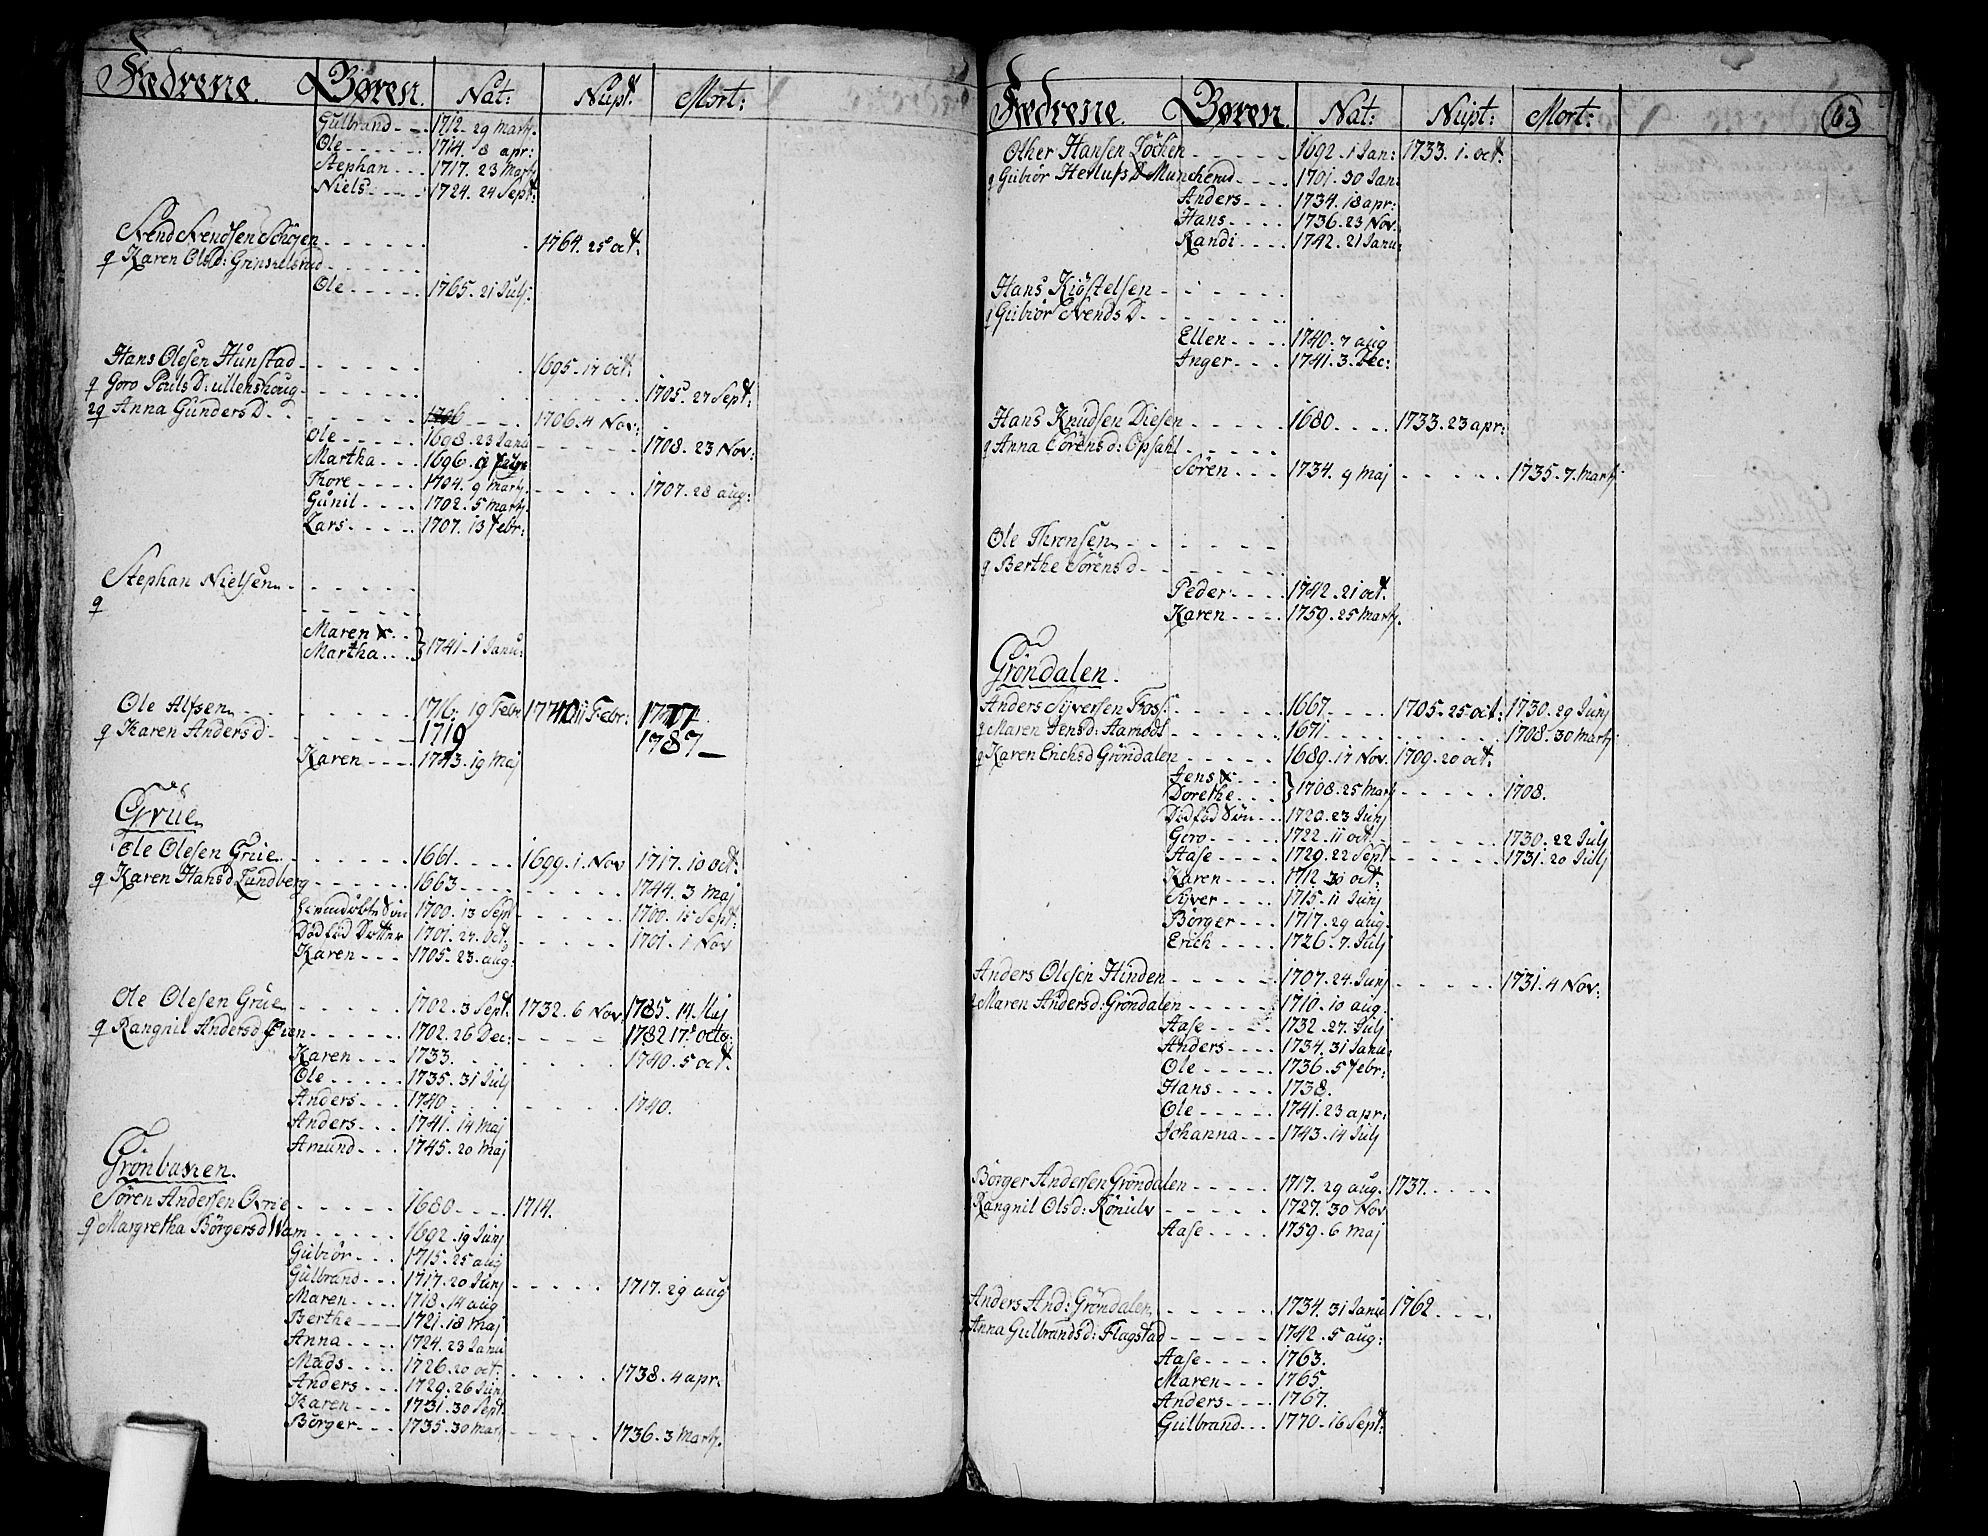 Fædrene. Børen. Nat: Nupt. Mort:
Gulbrand - - 1712. 29 Martj.
Ole - - - - 1714. 8 apr:
Stephan - - - 1717. 23 Martj
Niels - - - - 1724. 24 Sept:
Svend Svendsen - - - - - 1764. 25 oct.
q Karen Olsd: - - - - -
Ole - - - - - 1765. 21 Julj:
Hans Olesen Hunstad - - - - - 1695. 17 oct:
q Goro Pouls D: ullenshoug - - - - - 1705. 27 Sept:
2q Anna Gunders D. - - - - - 1706. 4 Nov:
Ole - - - - 1698. 23 Janu - - - - - 1708. 23 Nov:
Martha - - - 1696.
Tore - - - - 1704. 9 Martj. - - - - - 1707. 28 aug:
Gunil - - - - 1702. 5 Martj.
Lars - - - - 1707. 13 febr:
Stephan Nielsen - - - - -
q - - - - -
Maren
Martha . . . } 1741. 1 Janu:
Ole Alfsen - - - - - 1716. 19 Febr 1740 11 Febr: 1777
q Karen Andersd - - - - - 1719 1787
Karen - - - - 1743. 19 Maj
Grue
Ole Olesen Grue - - - - - 1661 - - - - 1699. 1. Nov 1717. 10 oct:
q Karen Hansd Lundberg - - - - - 1663 - - - - - 1744. 3 Maj
Søn 1700. 13 Sept - - - - - 1700. 15 Sept:
Dødfød Datter 1701. 27. oct: - - - - - 1701. 1 Nov
Karen - - - 1705. 23. aug:
Ole Olesen Grue - - - - - 1702. 3 Sept. 1732. 6 Nov 1785. 14 Maj
q Rangnil Andersd - - - - - 1702. 26 Dec: - - - - - 1782 17. octo:
Karen - - - - 1733. - - - - - 1740. 5 oct.
Ole - - - - - 1735. 31 Julj
Anders - - - 1740. - - - - - 1740.
Anders - - - 1741. 14 Maj
Amund - - - 1745. 20 Maj
Grønbacken.
Søren Andersen - - - - - 1680 - - - - 1714.
q Margretha Børgersd Wam - - - - - 1692. 19 Junj
Gubiør - - - 1715. 25 aug
Gulbrand - - - 1717. 20 Junj - - - - - 1717. 29 aug
Maren - - - - 1718. 14 aug
Berthe - - - - 1721. 18 Maj
Anna - - - - 1724. 23 Janu
Mads - - - - 1726. 20 oct: - - - - - 1738. 4 apr:
Anders - - - 1729. 26 Junj
Karen - - - 1731. 30 Sept.
Børger - - - 1735. 30 Mart - - - - - 1736. 3 Martj.
Fædrene. Børen. Nat: Nupt: Mort: 63
Other Hansen Løchen - - - - - 1692. 1 Jan: 1733. 1. oct.
q Gubiør Herlufs D Muncherud - - - - 1701. 30 Jan:
Anders - - - 1734. 18 apr:
Hans - - - - 1736. 23 Nov.
Randi - - - - 1742. 21 Janu:
Hans Kiøstelsen - - - - -
q Gubiør Svends D - - - - -
Ellen - - - - 1740. 7 aug
Inger - - - - 1741. 3. Dec:
Hans Knudsen Diesen - - - - - 1680. - - - - 1733. 23 apr:
q Anna Sørensd: Opsahl - - - - -
Søren - - - - 1734. 9 Maj - - - - - 1735. 7. Martj
Ole Thronsen - - - - -
q Berthe Sørensd - - - - -
Peder - - - - 1742. 21 oct.
Karen - - - - 1759. 25 Martj.
Grøndalen.
Anders Syversen Foss - - - - - 1667 - - - - 1705. 25 oct: 1730. 29 Junj
q Maren Jensd: - - - - - 1671 - - - - - 1708. 30 Martj:
q Karen Erichsd Grøndalen - - - - - 1689. 17 Nov. 1709. 20 oct:
Jens
Dorethe - - - } 1708. 25 Martj - - - - - 1708.
Dødfød Søn - - - 1720. 23 Junj
Goro - - - - 1722. 11 oct - - - - - 1730. 22 Julj
Aase - - - - 1729. 22 Sept - - - - - 1731. 20 Julj
Karen - - - - 1712. 30 oct:
Syver - - - - 1715. 11 Junj
Børger - - - - 1717. 29 aug.
Erich - - - - 1726. 7. Julj
Anders Olesen Hinden - - - - - 1707. 24. Junj - - - - - 1731. 4 Nov:
q Maren Andersd: Grøndalen - - - - - 1710. 10 aug.
Aase - - - - 1732. 27. Julj
Anders - - - - 1734. 31 Janu:
Ole - - - - - 1736. 5 febr:
Hans - - - - 1738.
Ole - - - - - 1741. 23 apr:
Johanna - - - 1743. 14 Julj
Børger Andersen Grøndalen - - - - - 1717. 29 aug. 1737. - - - -
Rangnil Olsd: - - - - - 1727. 30 Nov
Aase - - - - 1759. 6 Maj
Anders And: Grøndalen - - - - - 1734. 31 Janu 1762 - - - -
Anna Gulbrandsd: Flagstad - - - - - 1742. 5 aug:
Aase - - - - 1763.
Maren - - - 1765
Anders - - - 1767.
Gulbrand - - - 1770. 16 Sept.